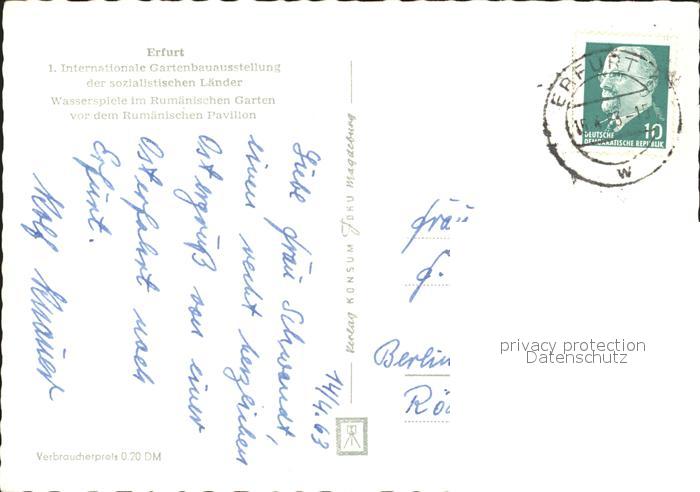 Erfurt
1. Internationale Gartenbauausstellung
der sozialistischen Länder
Wasserspiele im Rumänischen Garten
vor dem Rumänischen Pavillon
14/4.63
Liebe Frau Schwandt,
einen recht herzlichen
Ostergruß von einer
Osterfahrt nach
Erfurt.
Rolf
Verlag KONSUM FOKU Magdeburg
Verbraucherpreis 0.20 DM
ERFURT
W
10
DEUTSCHE
DEMOKRATISCHE REPUBLIK
Frau
Berlin
privacy protection
Datenschutz